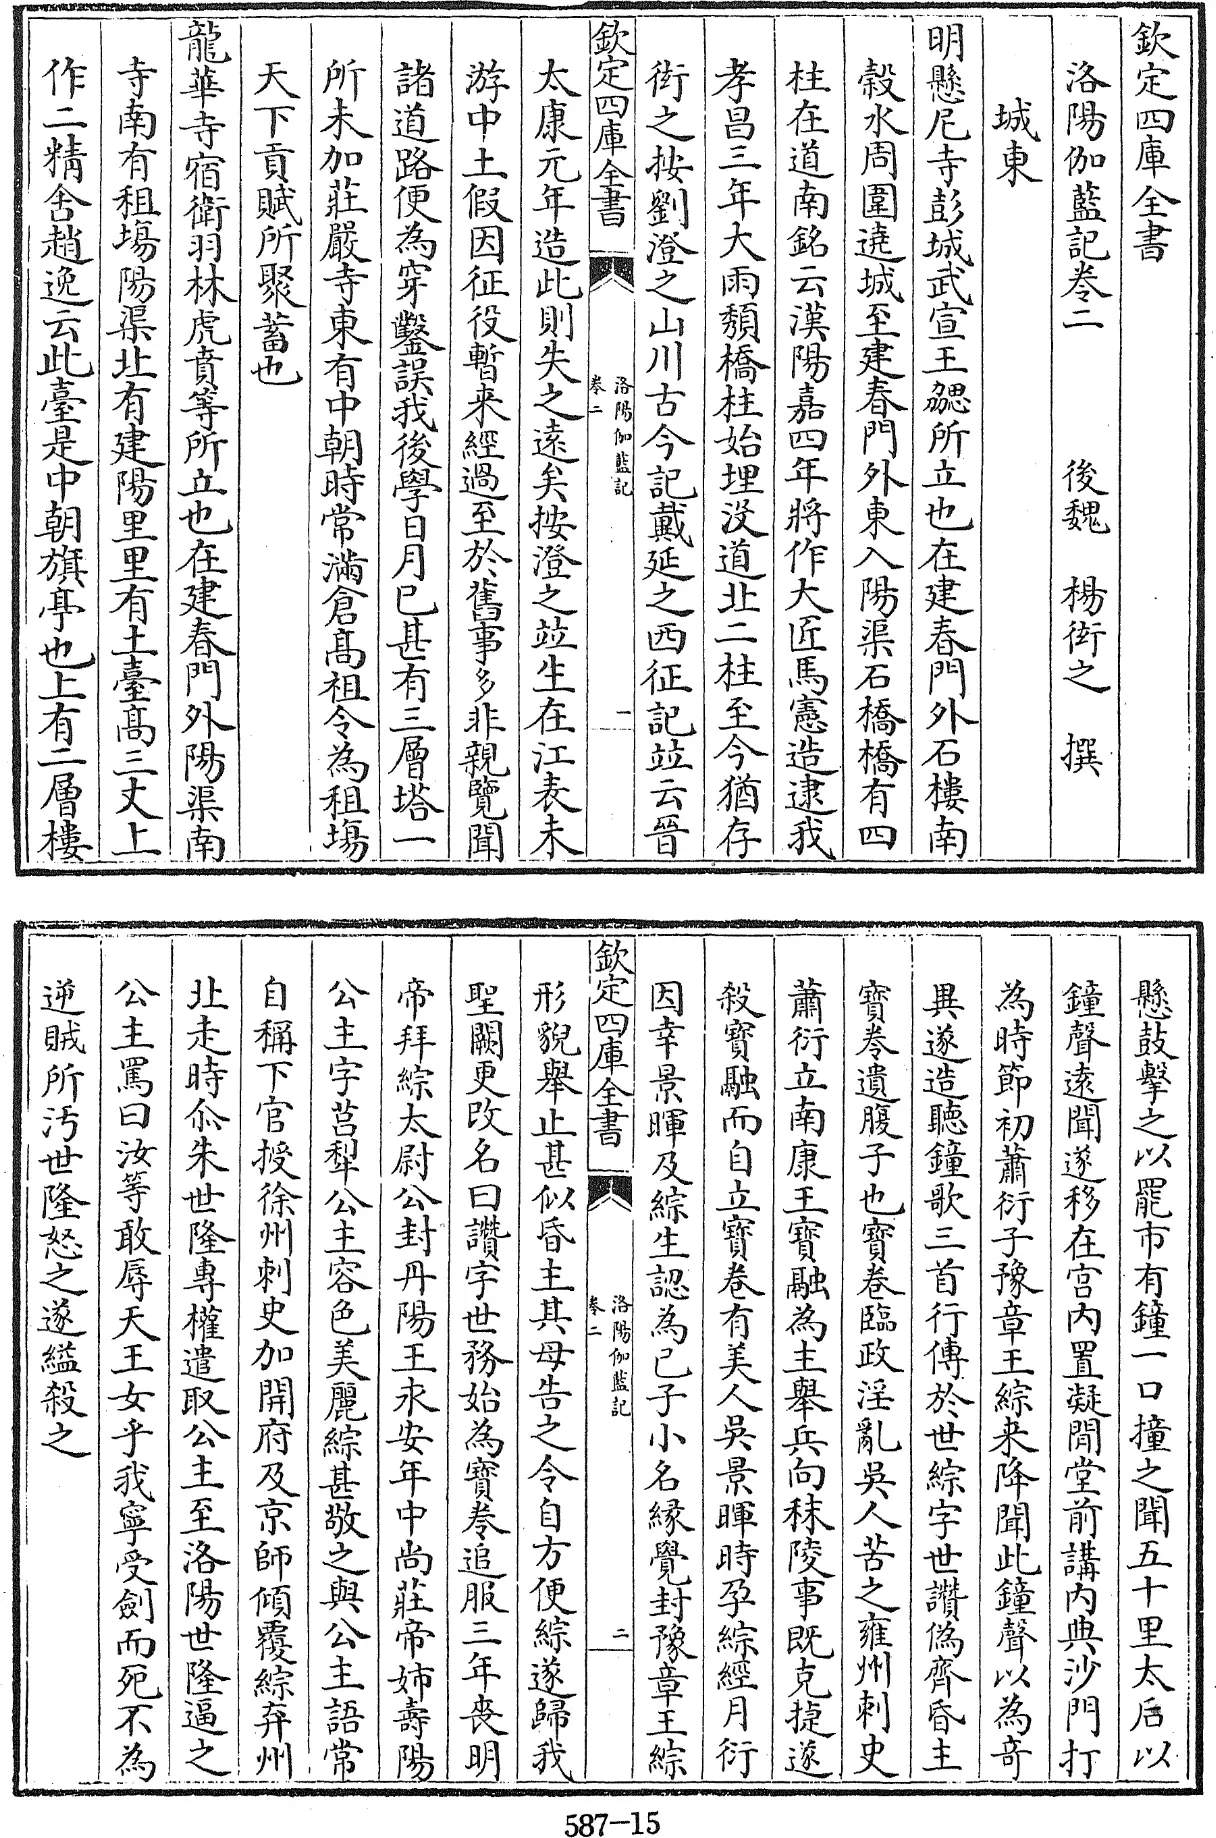 欽定四庫全書
洛陽伽藍記卷二
後魏 楊衒之 撰
城東
明懸尼寺彭城武宣王勰所立也在建春門外石樓南
穀水周圍遶城至建春門外東入陽渠石橋橋有四
柱在道南銘云漢陽嘉四年將作大匠馬憲造逮我
孝昌三年大雨頽橋柱始埋沒道北二柱至今猶存
衒之按劉澄之山川古今記戴延之西征記竝云晉
欽定四庫全書
洛陽伽藍記
卷二
一
太康元年造此則失之遠矣按澄之竝生在江表未
游中土假因征役暫来經過至於舊事多非親覽聞
諸道路便為穿鑿誤我後學日月已甚有三層塔一
所未加莊嚴寺東有中朝時常滿倉高祖令為租場
天下貢賦所聚蓄也
龍華寺宿衛羽林虎賁等所立也在建春門外陽渠南
寺南有租場陽渠北有建陽里里有土臺高三丈上
作二精舍趙逸云此臺是中朝旗亭也上有二層樓
懸鼓擊之以罷市有鐘一口撞之聞五十里太后以
鐘聲遠聞遂移在宮內置凝閒堂前講內典沙門打
為時節初蕭衍子豫章王綜来降聞此鐘聲以為奇
異遂造聽鐘歌三首行傳於世綜字世讚偽齊昏主
寶卷遺腹子也寶卷臨政淫亂吳人苦之雍州刺史
蕭衍立南康王寶融為主舉兵向秣陵事既克捷遂
殺寶融而自立寶卷有美人吳景暉時孕綜經月衍
因幸景暉及綜生認為已子小名緣覺封豫章王綜
欽定四庫全書
洛陽伽藍記
卷二
二
形貌舉止甚似昏主其母告之令自方便綜遂歸我
聖闕更改名曰讚字世務始為寶卷追服三年喪明
帝拜綜太尉公封丹陽王永安年中尚莊帝姊壽陽
公主字莒犁公主容色美麗綜甚敬之與公主語常
自稱下官授徐州刺史加開府及京師傾覆綜弃州
北走時尒朱世隆專權遣取公主至洛陽世隆逼之
公主罵曰汝等敢辱天王女乎我寧受劍而死不為
逆賊所汚世隆怒之遂縊殺之
587-15